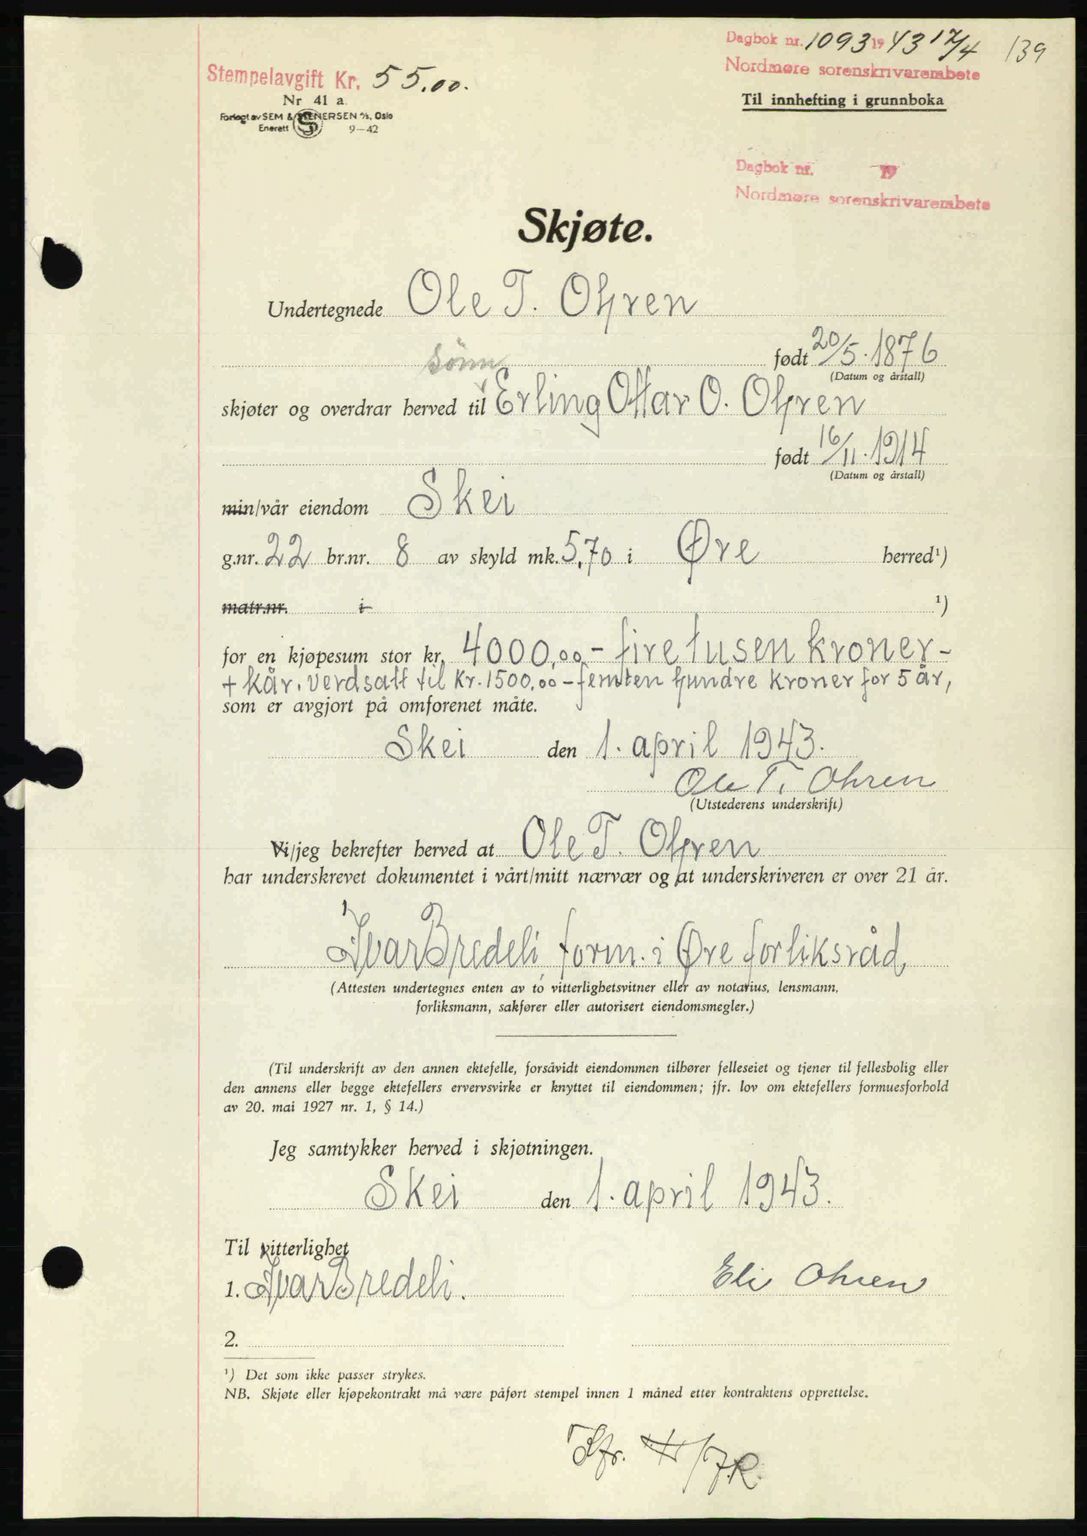 Dagbok nr. 1093 1943 17/4 139
Nordmøre sorenskrivarembete
Stempelavgift Kr. 55,00.
Nr 41 a.
Til innhefting i grunnboka
Forlagt av SEM & STENERSEN A/S, Oslo
Enerett 9—42
Dagbok nr. 19
Nordmøre sorenskrivarembete
Skjøte.
Undertegnede Ole T. Ohren
sønn født 20/5. 1876
(Datum og årstall)
skjøter og overdrar herved til Erling Ottar O. Ohren
født 16/11. 1914
(Datum og årstall)
min/vår eiendom Skei
g.nr. 22 br.nr. 8 av skyld mk. 5,70 i Øre herred¹)
matr.nr. i ¹)
for en kjøpesum stor kr. 4000,00 - fire tusen kroner -
+ kår, verdsatt til kr. 1500,00 - femten hundre kroner for 5 år,
som er avgjort på omforenet måte.
Skei den 1. april 1943.
Ole T. Ohren
(Utstederens underskrift)
Vi/jeg bekrefter herved at Ole T. Ohren
har underskrevet dokumentet i vårt/mitt nærvær og at underskriveren er over 21 år.
Ivar Bredeli, form. i Øre forliksråd,
(Attesten undertegnes enten av to vitterlighetsvitner eller av notarius, lensmann,
forliksmann, sakfører eller autorisert eiendomsmegler.)
(Til underskrift av den annen ektefelle, forsåvidt eiendommen tilhører felleseiet og tjener til fellesbolig eller
den annens eller begge ektefellers ervervsvirke er knyttet til eiendommen; jfr. lov om ektefellers formuesforhold
av 20. mai 1927 nr. 1, § 14.)
Jeg samtykker herved i skjøtningen.
Skei den 1. april 1943.
Til vitterlighet
1. Ivar Bredeli. Eli Ohren
2.
¹) Det som ikke passer strykes.
NB. Skjøte eller kjøpekontrakt må være påført stempel innen 1 måned etter kontraktens opprettelse.